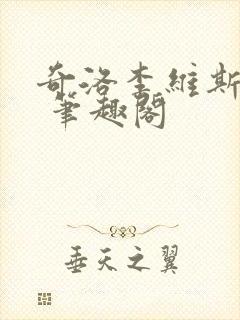 奇洛李維斯
筆趣閣
垂天之翼